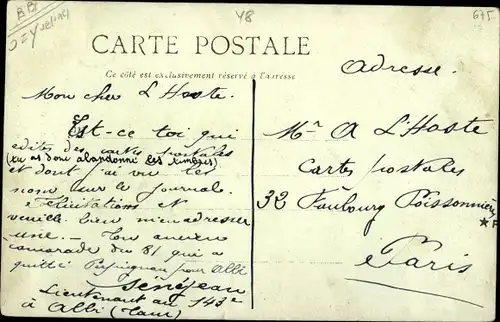 BB
78
O = Yvelines
675
CARTE POSTALE
Ce côté est exclusivement réservé à l'adresse
Adresse.
Mon cher L'Hoste.
Est-ce toi qui
édites des cartes postales
(tu as donc abandonné les timbres)
et dont j'ai vu les
noms sur le journal.
Félicitations et
veuille bien m'en adresser
une. — Ton ancien
camarade du 81 qui a
quitté Perpignan pour Albi
Sénéjean
Lieutenant au 143e
à Albi (Tarn)
Mr A L'Hoste
Cartes postales
32 Faubourg Poissonnière
Paris